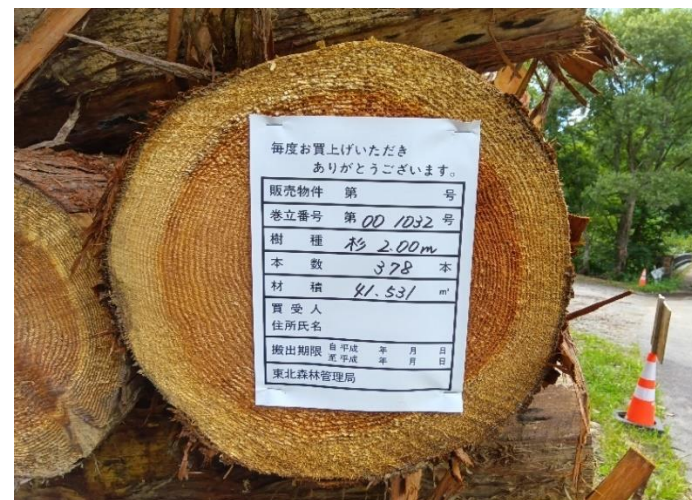 毎度お買上げいただき
ありがとうございます。
販売物件 第 号
巻立番号 第 00 1032 号
樹 種 杉 2.00m
本 数 378 本
材 積 41.531 m³
買 受 人
住所氏名
搬出期限 自 平成 年 月 日
至 平成 年 月 日
東北森林管理局